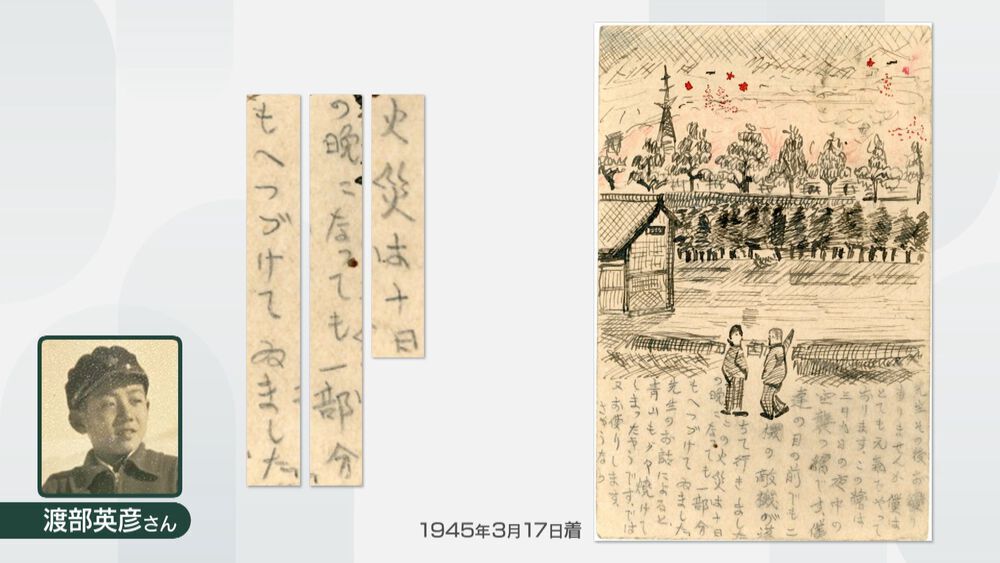 火災は十日
の晩になっても一部分
もへつづけてゐました
先生その後お變
りありませんか僕は
とても元氣でやって
おります。この繪は
三月九日の夜中の
空襲の繪です僕
達の目の前でも
機の敵機が落
ちて行きました
この火災は十日
の晩になっても一部分
もへつづけてゐました
先生のお話によると
青山も焼けて
しまったそうです。では
又お便りします。
さようなら
渡部英彦さん
1945年3月17日着